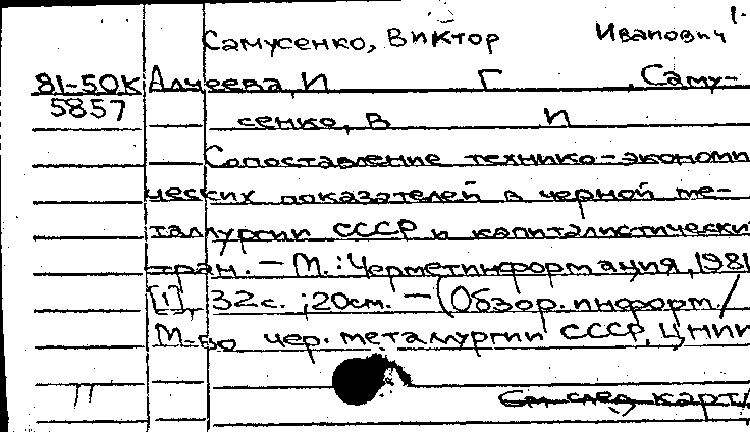 1.
Самусенко, Виктор Иванович
81-50К Алчеева, И Г , Саму-
5857 сенко, В И
Сопоставление технико-экономи
ческих показателей в черной ме-
таллургии СССР и капиталистически
стран. – М.: Черметинформация, 1981
[1], 32с. ; 20см. – (Обзор. информ. /
М-во чер. металлургии СССР, ЦНИИ
11 См след карт